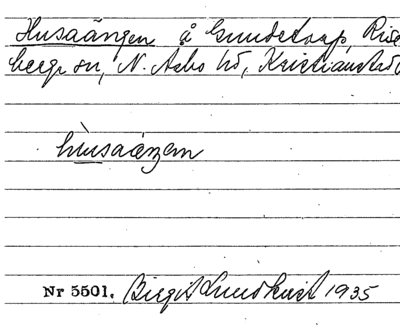 Husaängen å Gundestorp, Rise
berga sn, N. Åsbo hd, Kristianstads
hùsaäŋen
Nr 5501. Birgit Lundkvist 1935